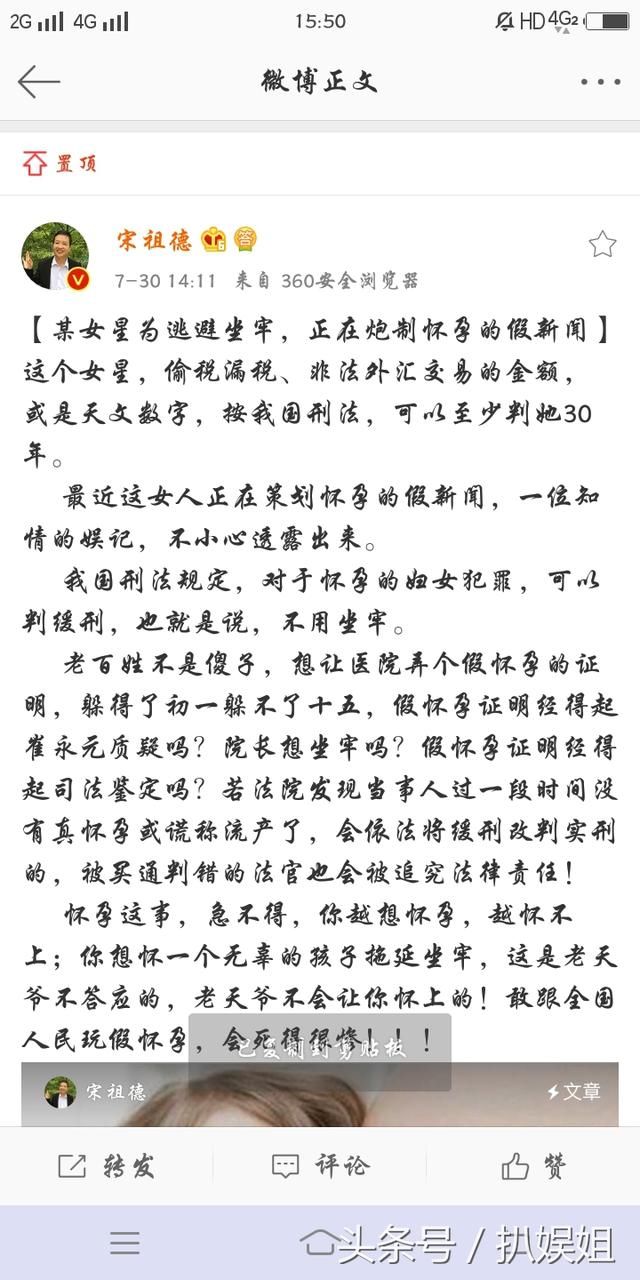 2G 4G 15:50 HD 4G2
微博正文
置顶
宋祖德
7-30 14:11 来自 360安全浏览器
【某女星为逃避坐牢，正在炮制怀孕的假新闻】
这个女星，偷税漏税、非法外汇交易的金额，
或是天文数字，按我国刑法，可以至少判她30
年。
最近这女人正在策划怀孕的假新闻，一位知
情的娱记，不小心透露出来。
我国刑法规定，对于怀孕的妇女犯罪，可以
判缓刑，也就是说，不用坐牢。
老百姓不是傻子，想让医院弄个假怀孕的证
明，躲得了初一躲不了十五，假怀孕证明经得起
崔永元质疑吗？院长想坐牢吗？假怀孕证明经得
起司法鉴定吗？若法院发现当事人过一段时间没
有真怀孕或谎称流产了，会依法将缓刑改判实刑
的，被买通判错的法官也会被追究法律责任！
怀孕这事，急不得，你越想怀孕，越怀不
上；你想怀一个无辜的孩子拖延坐牢，这是老天
爷不答应的，老天爷不会让你怀上的！敢跟全国
人民玩假怀孕，会死得很惨！！！
已复制到剪贴板
宋祖德 文章
转发 评论 赞
头条号 / 扒娱姐